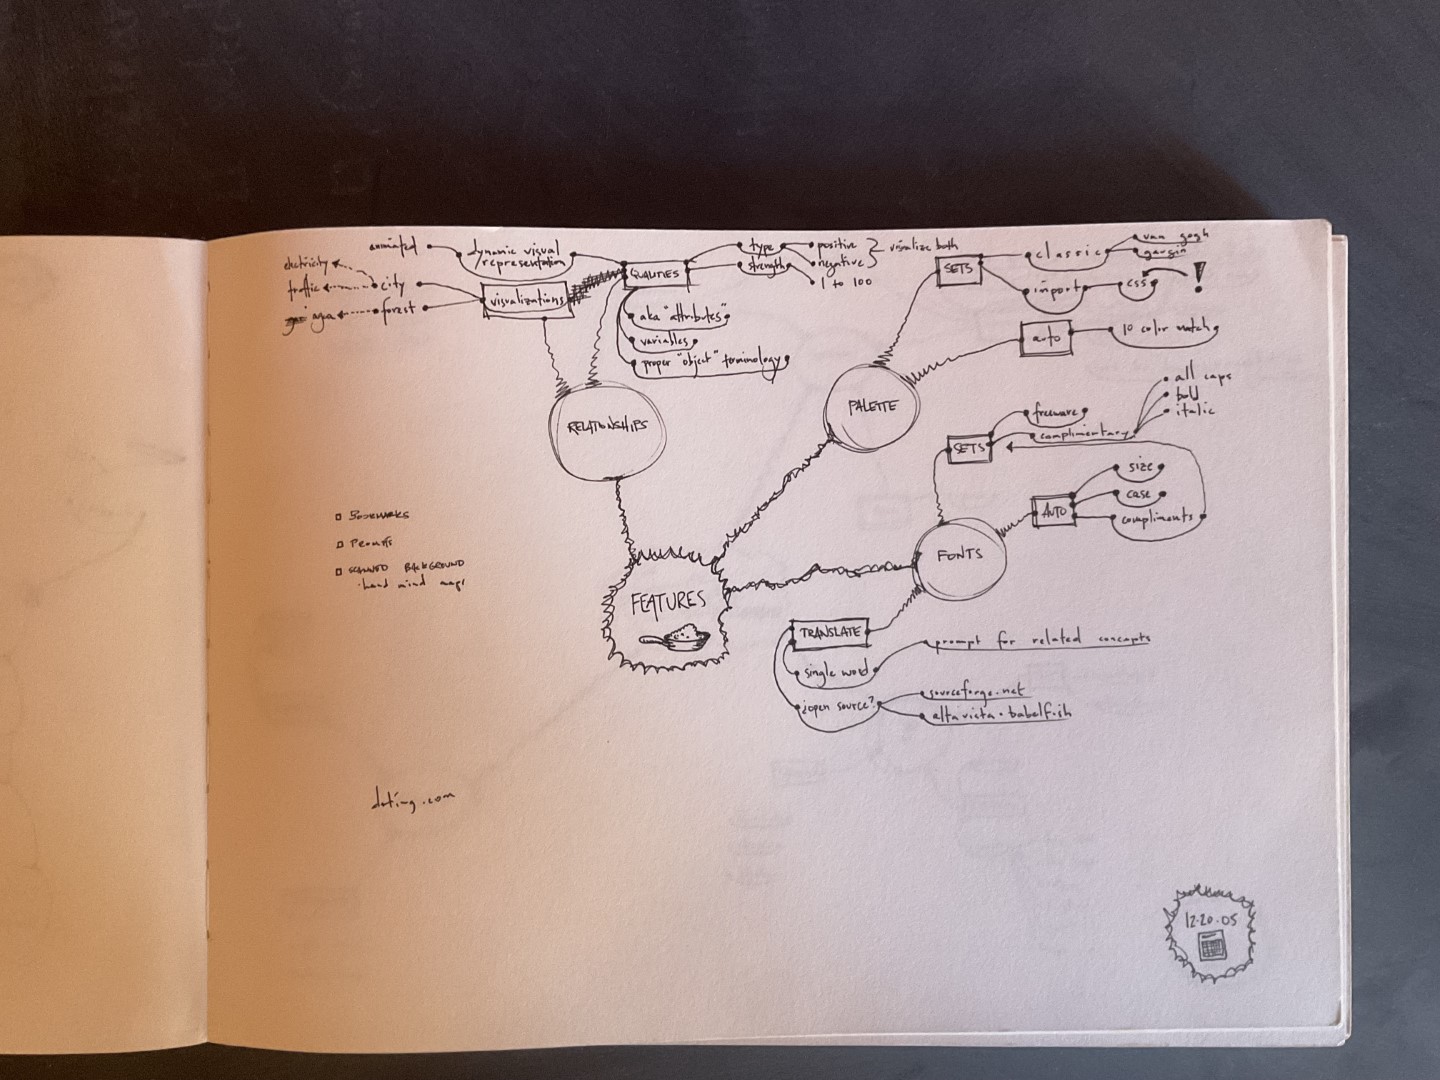 animated
dynamic visual
representation
electricity
traffic
city
agua
forest
visualizations
QUALITIES
type
strength
positive
negative
1 to 100
visualize both
aka "attributes"
variables
proper "object" terminology
RELATIONSHIPS
SETS
classic
van gogh
import
css
!
auto
10 color match
PALETTE
SETS
freeware
complimentary
all caps
bold
italic
AUTO
size
case
compliments
FONTS
BOOKMARKS
SCANNED BACKGROUND
·hand mind maps
FEATURES
TRANSLATE
single word
prompt for related concepts
¿open source?
sourceforge.net
altavista·babelfish
dating.com
12·20·05